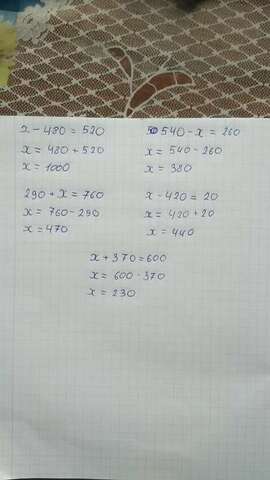 x - 480 = 520
x = 480 + 520
x = 1000
540 - x = 260
x = 540 - 260
x = 380
290 + x = 760
x = 760 - 290
x = 470
x - 420 = 20
x = 420 + 20
x = 440
x + 370 = 600
x = 600 - 370
x = 230